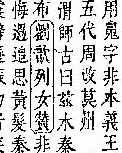 用鬼字非本義王
五代周改莫州
謂師古曰茲水秦
布劉歆列女贊非
悔過追思黃髮秦